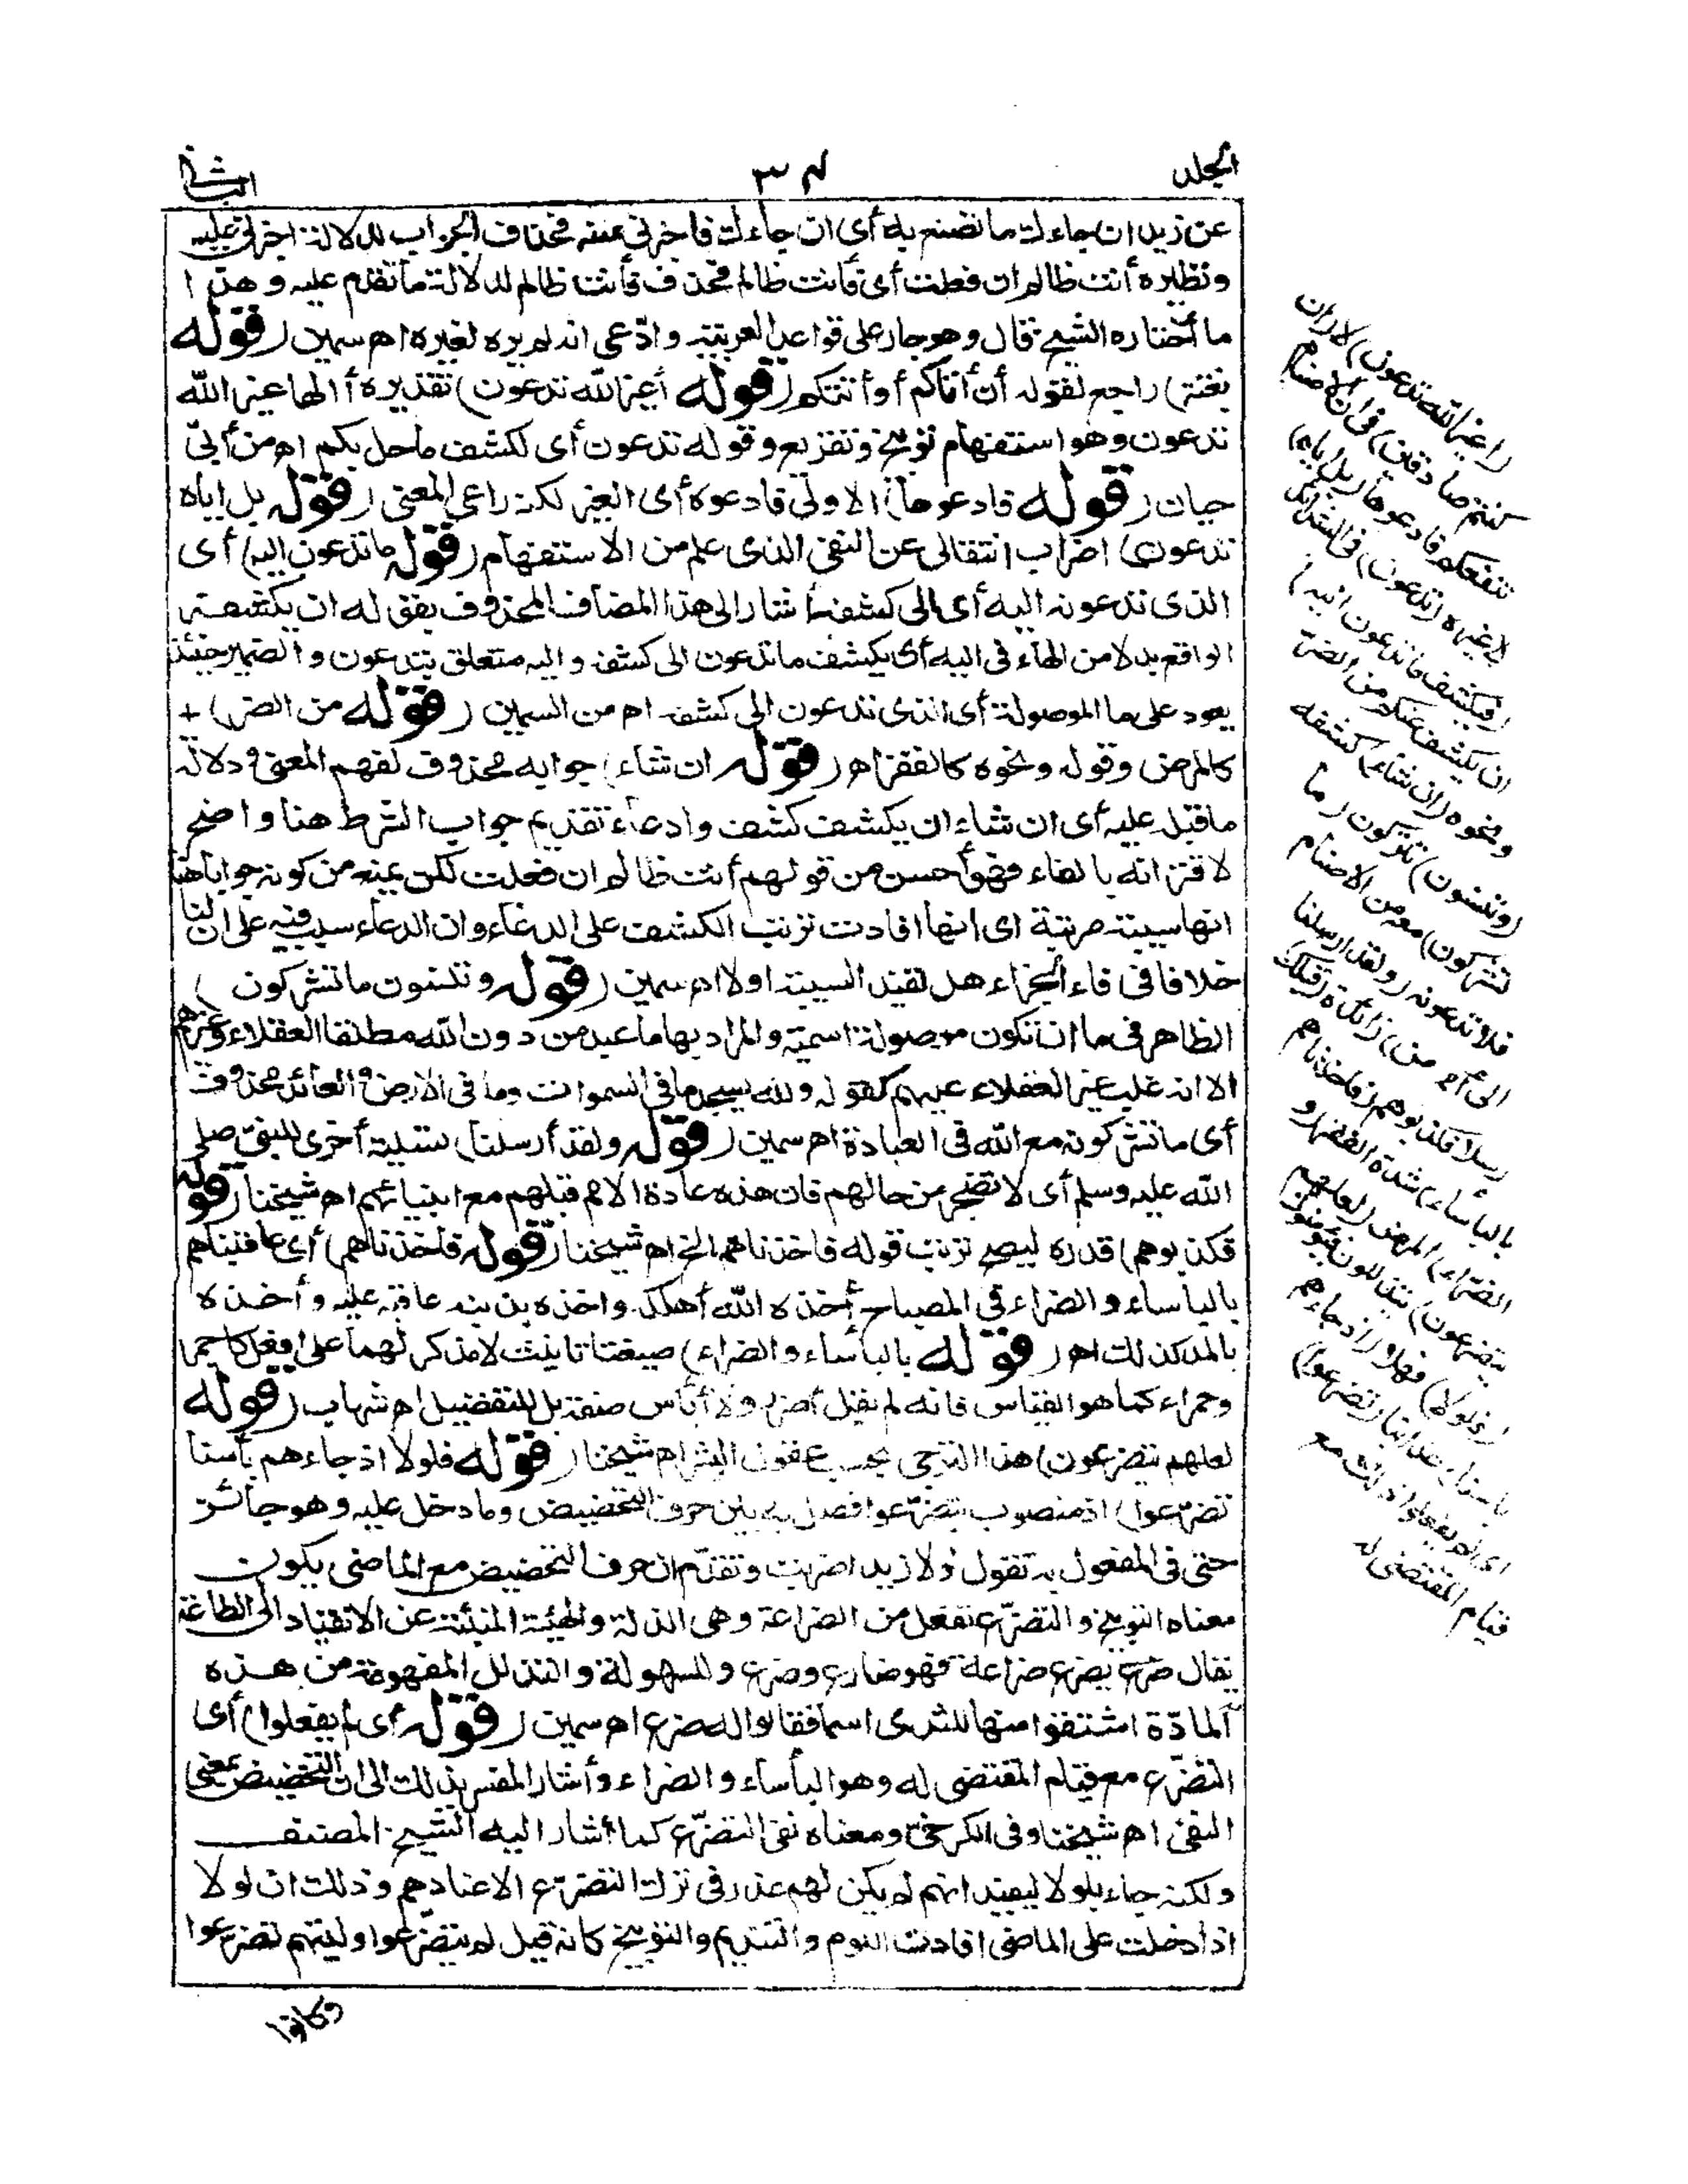 المجلد
٣٤
الثانى
عن زيد ان جاءك ما تصنع به أى ان جاءك فاخبرنى عنه فحذف الجواب لدلالة اخبرنى عليه
ونظيره أنت ظالم ان فعلت أى فأنت ظالم فحذف فأنت ظالم لدلالة ما تقدم عليه وهذا
ما اختاره الشيخ قال وهو جار على قواعد العربية وادّعى انه لم يره لغيره اهـ سمين (قوله
بغتة) راجع لقوله أن أتاكم أو أتتكم (قوله أغير الله تدعون) تقديره أ الها غير الله
تدعون وهو استفهام توبيخ وتقريع وقوله تدعون أى لكشف ما حل بكم اهـ من أبى
حيان (قوله فادعوها) الاولى فادعوه أى الغير لكنه راعى المعنى (قوله بل اياه
تدعون) اضراب انتقالى عن النفى الذى علم من الاستفهام (قوله ما تدعون اليه) أى
الذى تدعونه اليه أى الى كشفه أشار الى هذا المضاف المحذوف بقوله ان يكشفه
الواقع بدلا من الهاء فى اليه أى يكشف ما تدعون الى كشفه واليه متعلق بتدعون والضمير حينئذ
يعود على ما الموصولة أى الذى تدعون الى كشفه اهـ من السمين (قوله من الضر) +
كالمرض وقوله ونحوه كالفقر اهـ (قوله ان شاء) جوابه محذوف لفهم المعنى ودلالة
ما قبل عليه أى ان شاء ان يكشف كشف وادعاء تقديم جواب الشرط هنا واضح
لاقترانه بالفاء فهو أحسن من قولهم أنت ظالم ان فعلت لكن يمنع من كونه جوابا هنا
انها سببية مرتبة اى انها افادت ترتب الكشف على الدعاء وان الدعاء سبب فيه على ان لنا
خلافا فى فاء الجزاء هل تفيد السببية اولا اهـ سمين (قوله وتنسون ما تشركون)
الظاهر فى ما ان تكون موصولة اسمية والمراد بها ما عبد من دون الله مطلقا العقلاء وغيرهم
الا انه غلب غير العقلاء عليهم كقوله ولله يسجد ما فى السموات وما فى الارض والعائد محذوف
أى ما تشركونه مع الله فى العبادة اهـ سمين (قوله ولقد أرسلنا) تسلية أخرى للنبى صلى
الله عليه وسلم أى لا تضجر من حالهم فان هذه عادة الامم قبلهم مع انبيائهم اهـ شيخنا (قوله
فكذبوهم) قدره ليصح ترتب قوله فاخذناهم الخ اهـ شيخنا (قوله فأخذناهم) أى عاقبناهم
بالبأساء والضراء فى المصباح أخذه الله أهلكه واخذه بذنبه عاقبه عليه وأخذه
بالمد كذلك اهـ (قوله بالبأساء والضراء) صيغتا تأنيث لا مذكر لهما على افعل كأحمر
وحمراء كما هو القياس فانه لم يقل أضر ولا أبأس صفة بل للتفضيل اهـ شهاب (قوله
لعلهم يتضرعون) هذا الترجى بحسب عقول البشر اهـ شيخنا (قوله فلولا اذ جاءهم بأسنا
تضرعوا) اذ منصوب بتضرعوا فصل به بين حرف التحضيض وما دخل عليه وهو جائز
حتى فى المفعول به تقول لولا زيدا ضربت وتقدّم ان حرف التحضيض مع الماضى يكون
معناه التوبيخ والتضرّع تفعل من الضراعة وهى الذلة والهيئة المنبئة عن الانقياد الى الطاعة
يقال ضرع يضرع ضراعة فهو ضارع وضرع وللسهولة والتذلل المفهومة من هذه
المادّة اشتقوا منها للثدى اسما فقالوا له ضرع اهـ سمين (قوله أى لم يفعلوا) أى
التضرّع مع قيام المقتضى له وهو البأساء والضراء وأشار المفسر بذلك الى ان التحضيض بمعنى
النفى اهـ شيخنا وفى الكرخى ومعناه نفى التضرّع كما أشار اليه الشيخ المصنف
ولكنه جاء بلولا ليفيد انهم لم يكن لهم عذر فى ترك التضرع الا عنادهم وذلك ان لولا
اذا دخلت على الماضى افادت اللوم والتنديم والتوبيخ كانه قيل لم يتضرّعوا وليتهم تضرعوا
وكانوا
(أغير الله تدعون) لا (ان
كنتم صادقين) فى ان الاصنام
تنفعكم فادعوها (بل اياه)
لا غيره (تدعون) فى الشدائد
(فيكشف ما تدعون اليه)
ان يكشفه عنكم من الضر
ونحوه (ان شاء) كشفه
(وتنسون) تتركون (ما
تشركون) معه من الاصنام
فلا تدعونه (ولقد ارسلنا
الى أمم من) زائدة (قبلك)
رسلا فكذبوهم (فاخذناهم
بالبأساء) شدة الفقر (و
الضراء) المرض (لعلهم
يتضرعون) يتذللون فيؤمنون
(فلولا) فهلا (اذ جاءهم
بأسنا) عذابنا (تضرعوا)
اى لم يفعلوا ذلك مع
قيام المقتضى له